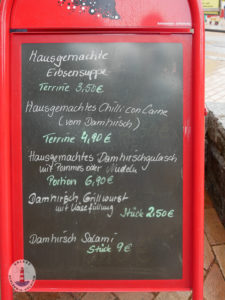 Hausgemachte
Erbsensuppe
Terrine 3,50€
Hausgemachtes Chilli con Carne
(vom Damhirsch)
Terrine 4,90€
Hausgemachtes Damhirschgulasch
mit Pommes oder Nudeln
Portion 6,90€
Damhirsch Grillwurst
mit Käsefüllung
Stück 2,50€
Damhirsch Salami
Stück 9€